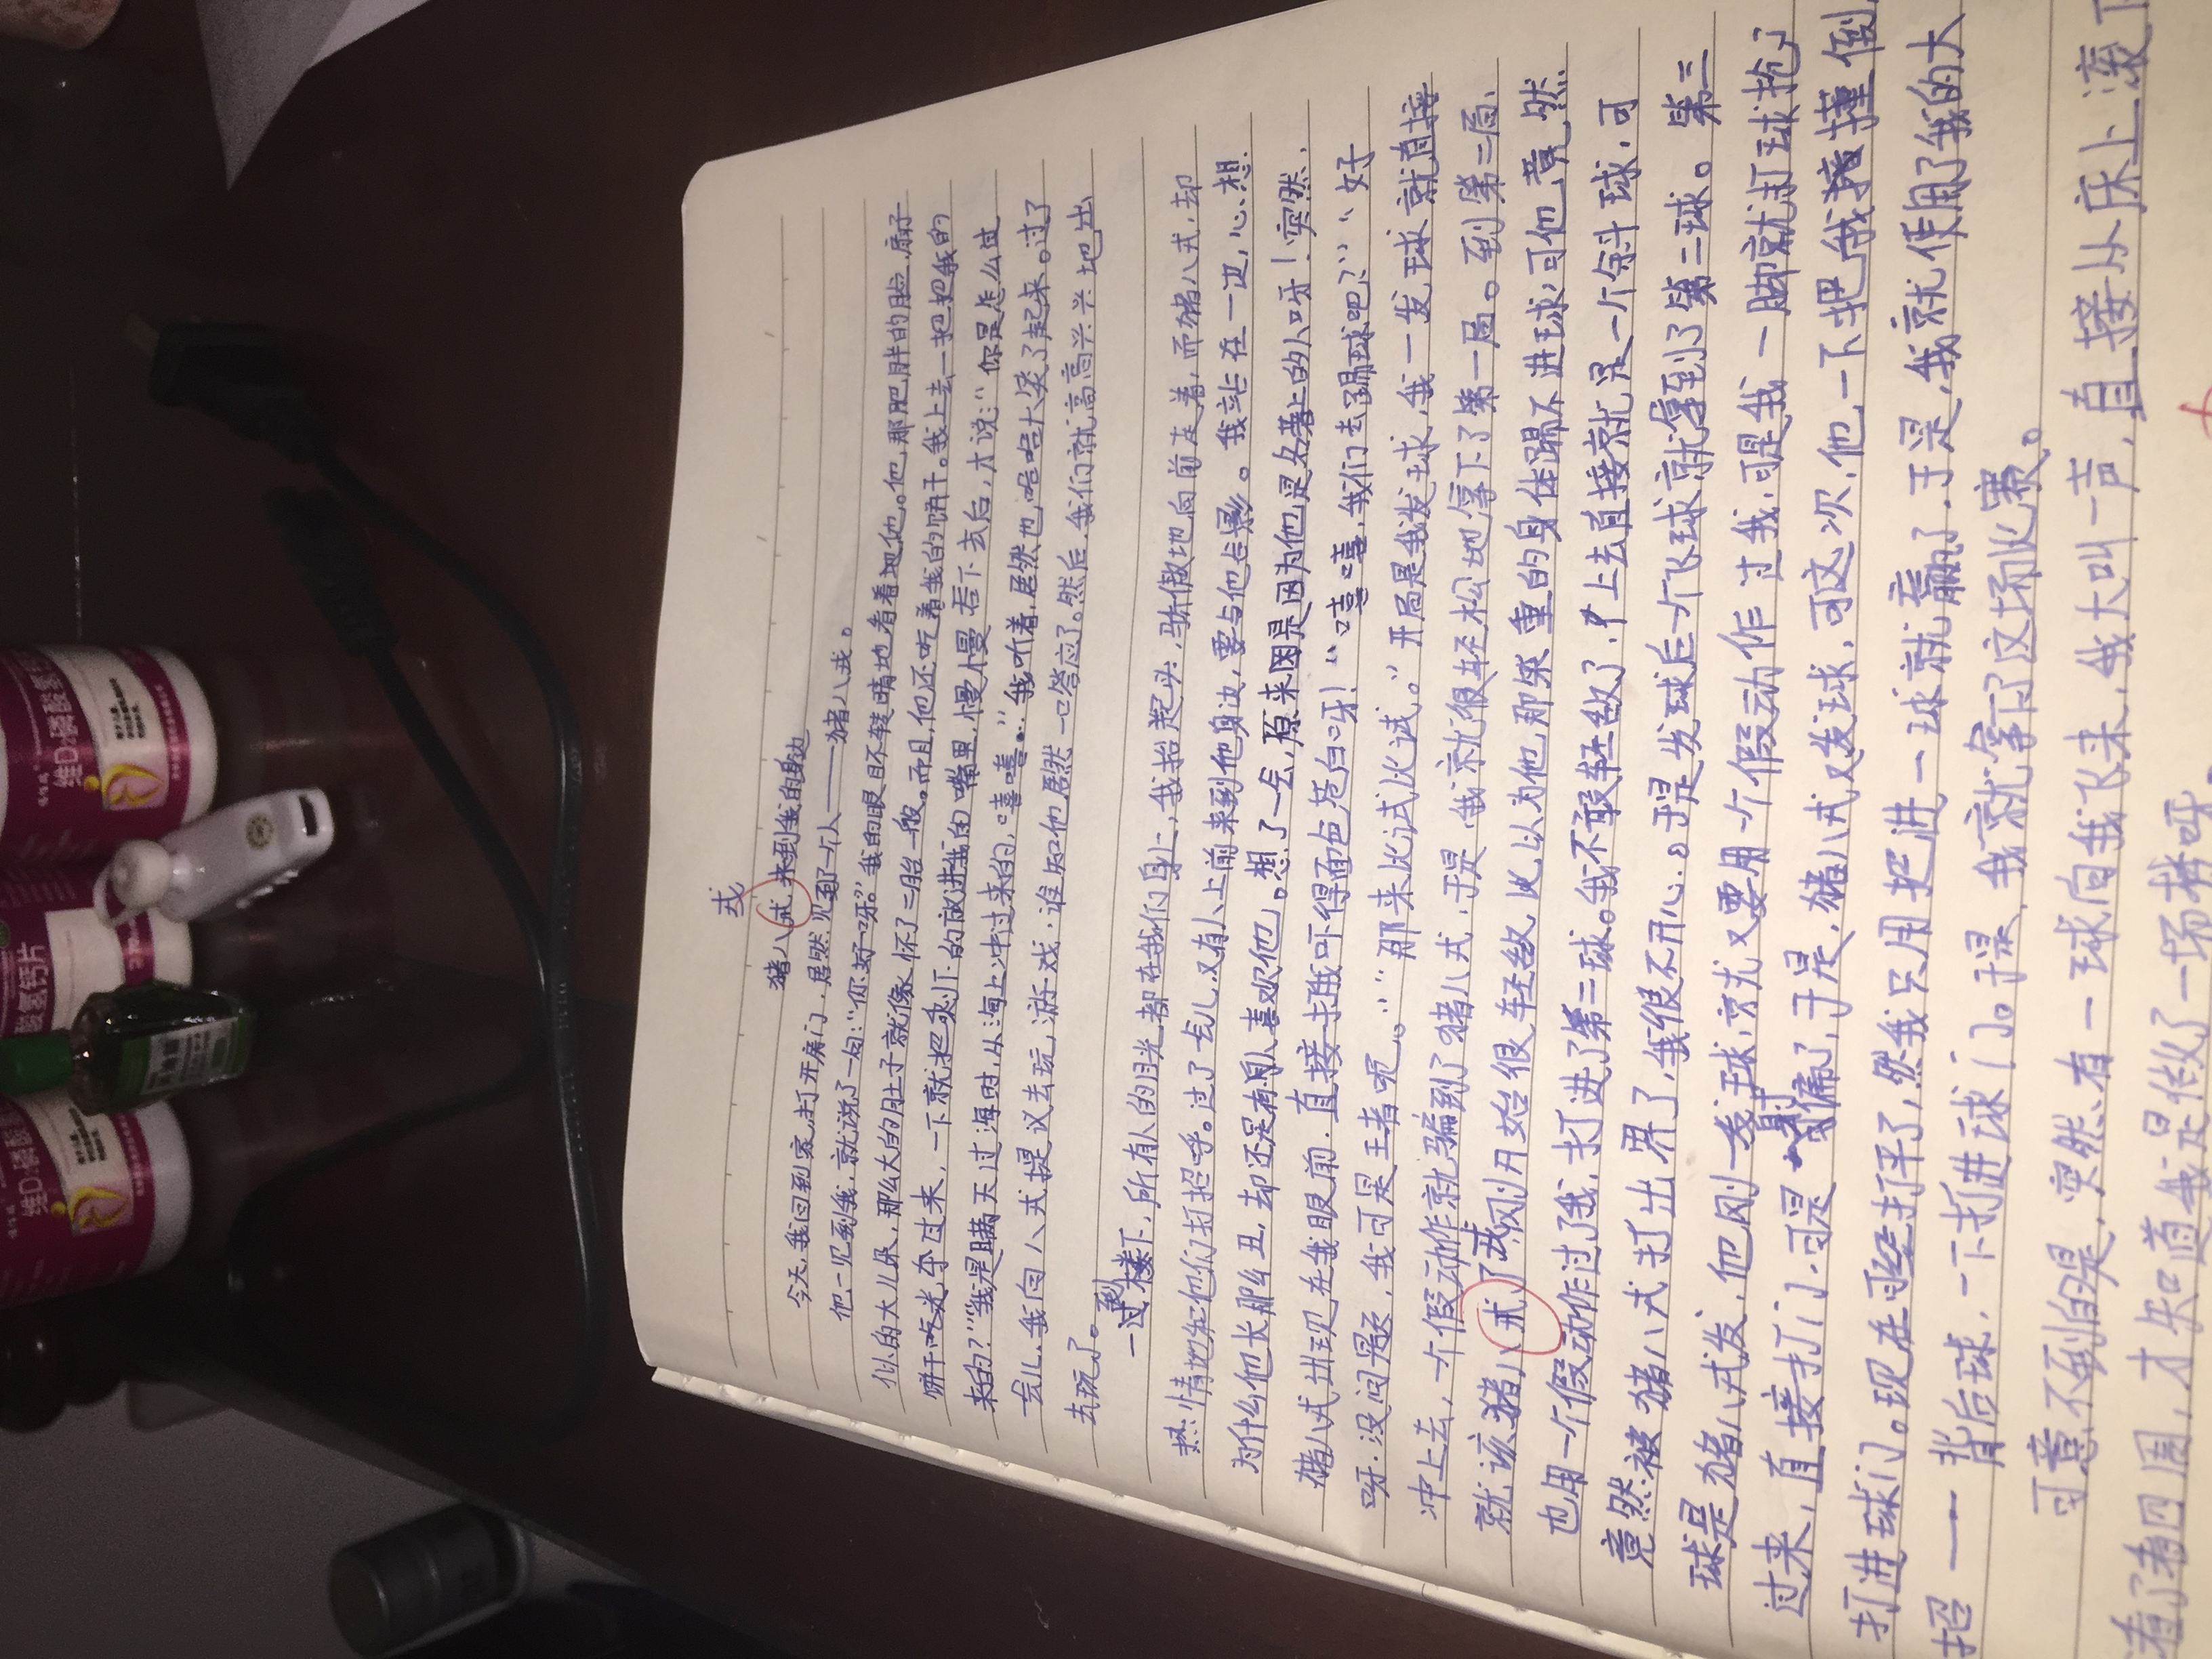 戒
猪八戒来到我的身边
今天,我回到家,打开房门,居然见到一个人——猪八戒。
他一见到我,就说了一句:“你好呀。”我的眼目不转睛地看着他。他,那肥胖的脸,扇子
似的大儿朵,那么大的肚子就像怀了二胎一般。而且,他还吃着我的饼干。我上去一把把我的
饼干吃光夺过来,一下就把剩下的放进我的嘴里,慢慢若下去后,才说:“你是怎么过
来的?”“我是瞒天过海时,从海上冲过来的,嘻嘻…”我听着,居然也哈哈大笑了起来。过了
会儿,我向八戒提议去玩,游戏,谁知他居然一口答应了。然后,我们就高高兴兴地出
去玩了。
到
一过楼下,所有人的目光都在我们身上,我抬起头,骄傲地向前走着,而猪八戒,却
热情地和他们打招呼。过了会儿,又有人上前来到他身边,要与他合影。我站在一边,心想:
为什么他长那么丑,却还是有人喜欢他。想了一会,原来是因为他是名著上的人呀!突然,
猪八戒出现在我眼前,直接把我吓得面色苍白呀!“嘻嘻,我们去踢球吧?”“好
呀,没问题,我可是王者呢。”“那来比试比试。”开局是我发球,我一发球就直接
冲上去,一个假动作就骗到了猪八戒,于是,我就很轻松地拿下了第一局。到第二局,
就该猪八戒了,刚开始很轻敌,以为他那笨重的身体踢不进球,可他竟然
也用一个假动作过了我,打进了第二球。我不敢轻敌了,上去直接就是一个斜球,可
竟然被猪八戒打出界了,我很不开心。于是发球后一个飞球就拿到了第二球。第三
球是猪八戒发,他刚一发球,就又要用一个假动作过我,可是我一脚就打球抢了
过来,直接打门,可是射偏了,于是,猪八戒又发球,可这次,他一下把我撞倒,
打进球门。现在已经打平了,然我只用把进一球就赢了,于是,我就使用了我的大
招——背后球,一下打进球门。于是,我就拿了这场比赛。
可意不到的是,突然有一球向我飞来,我大叫一声,直接从床上滚下
看了看四周,才知道我是做了一场梦呀
维D2磷酸氢
酸氢钙片
维D2磷酸